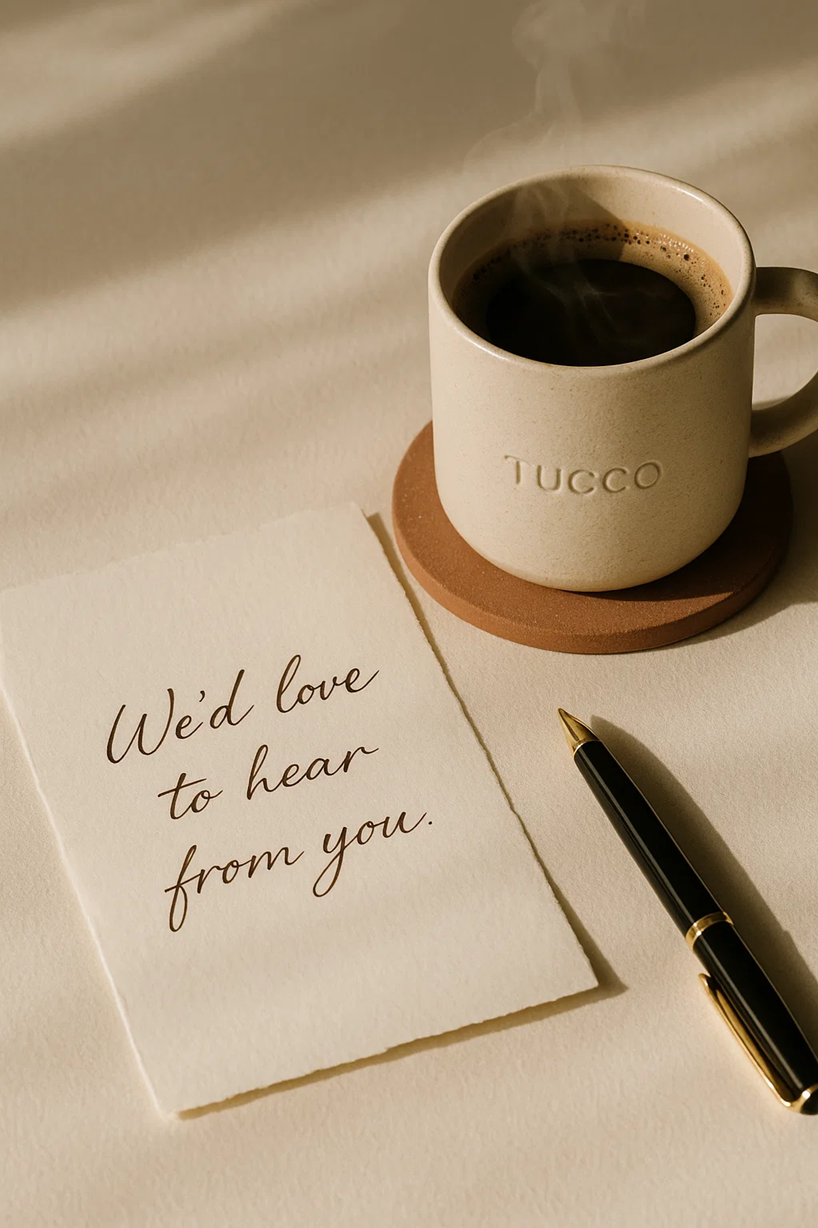 TUCCO
We'd love
to hear
from you.